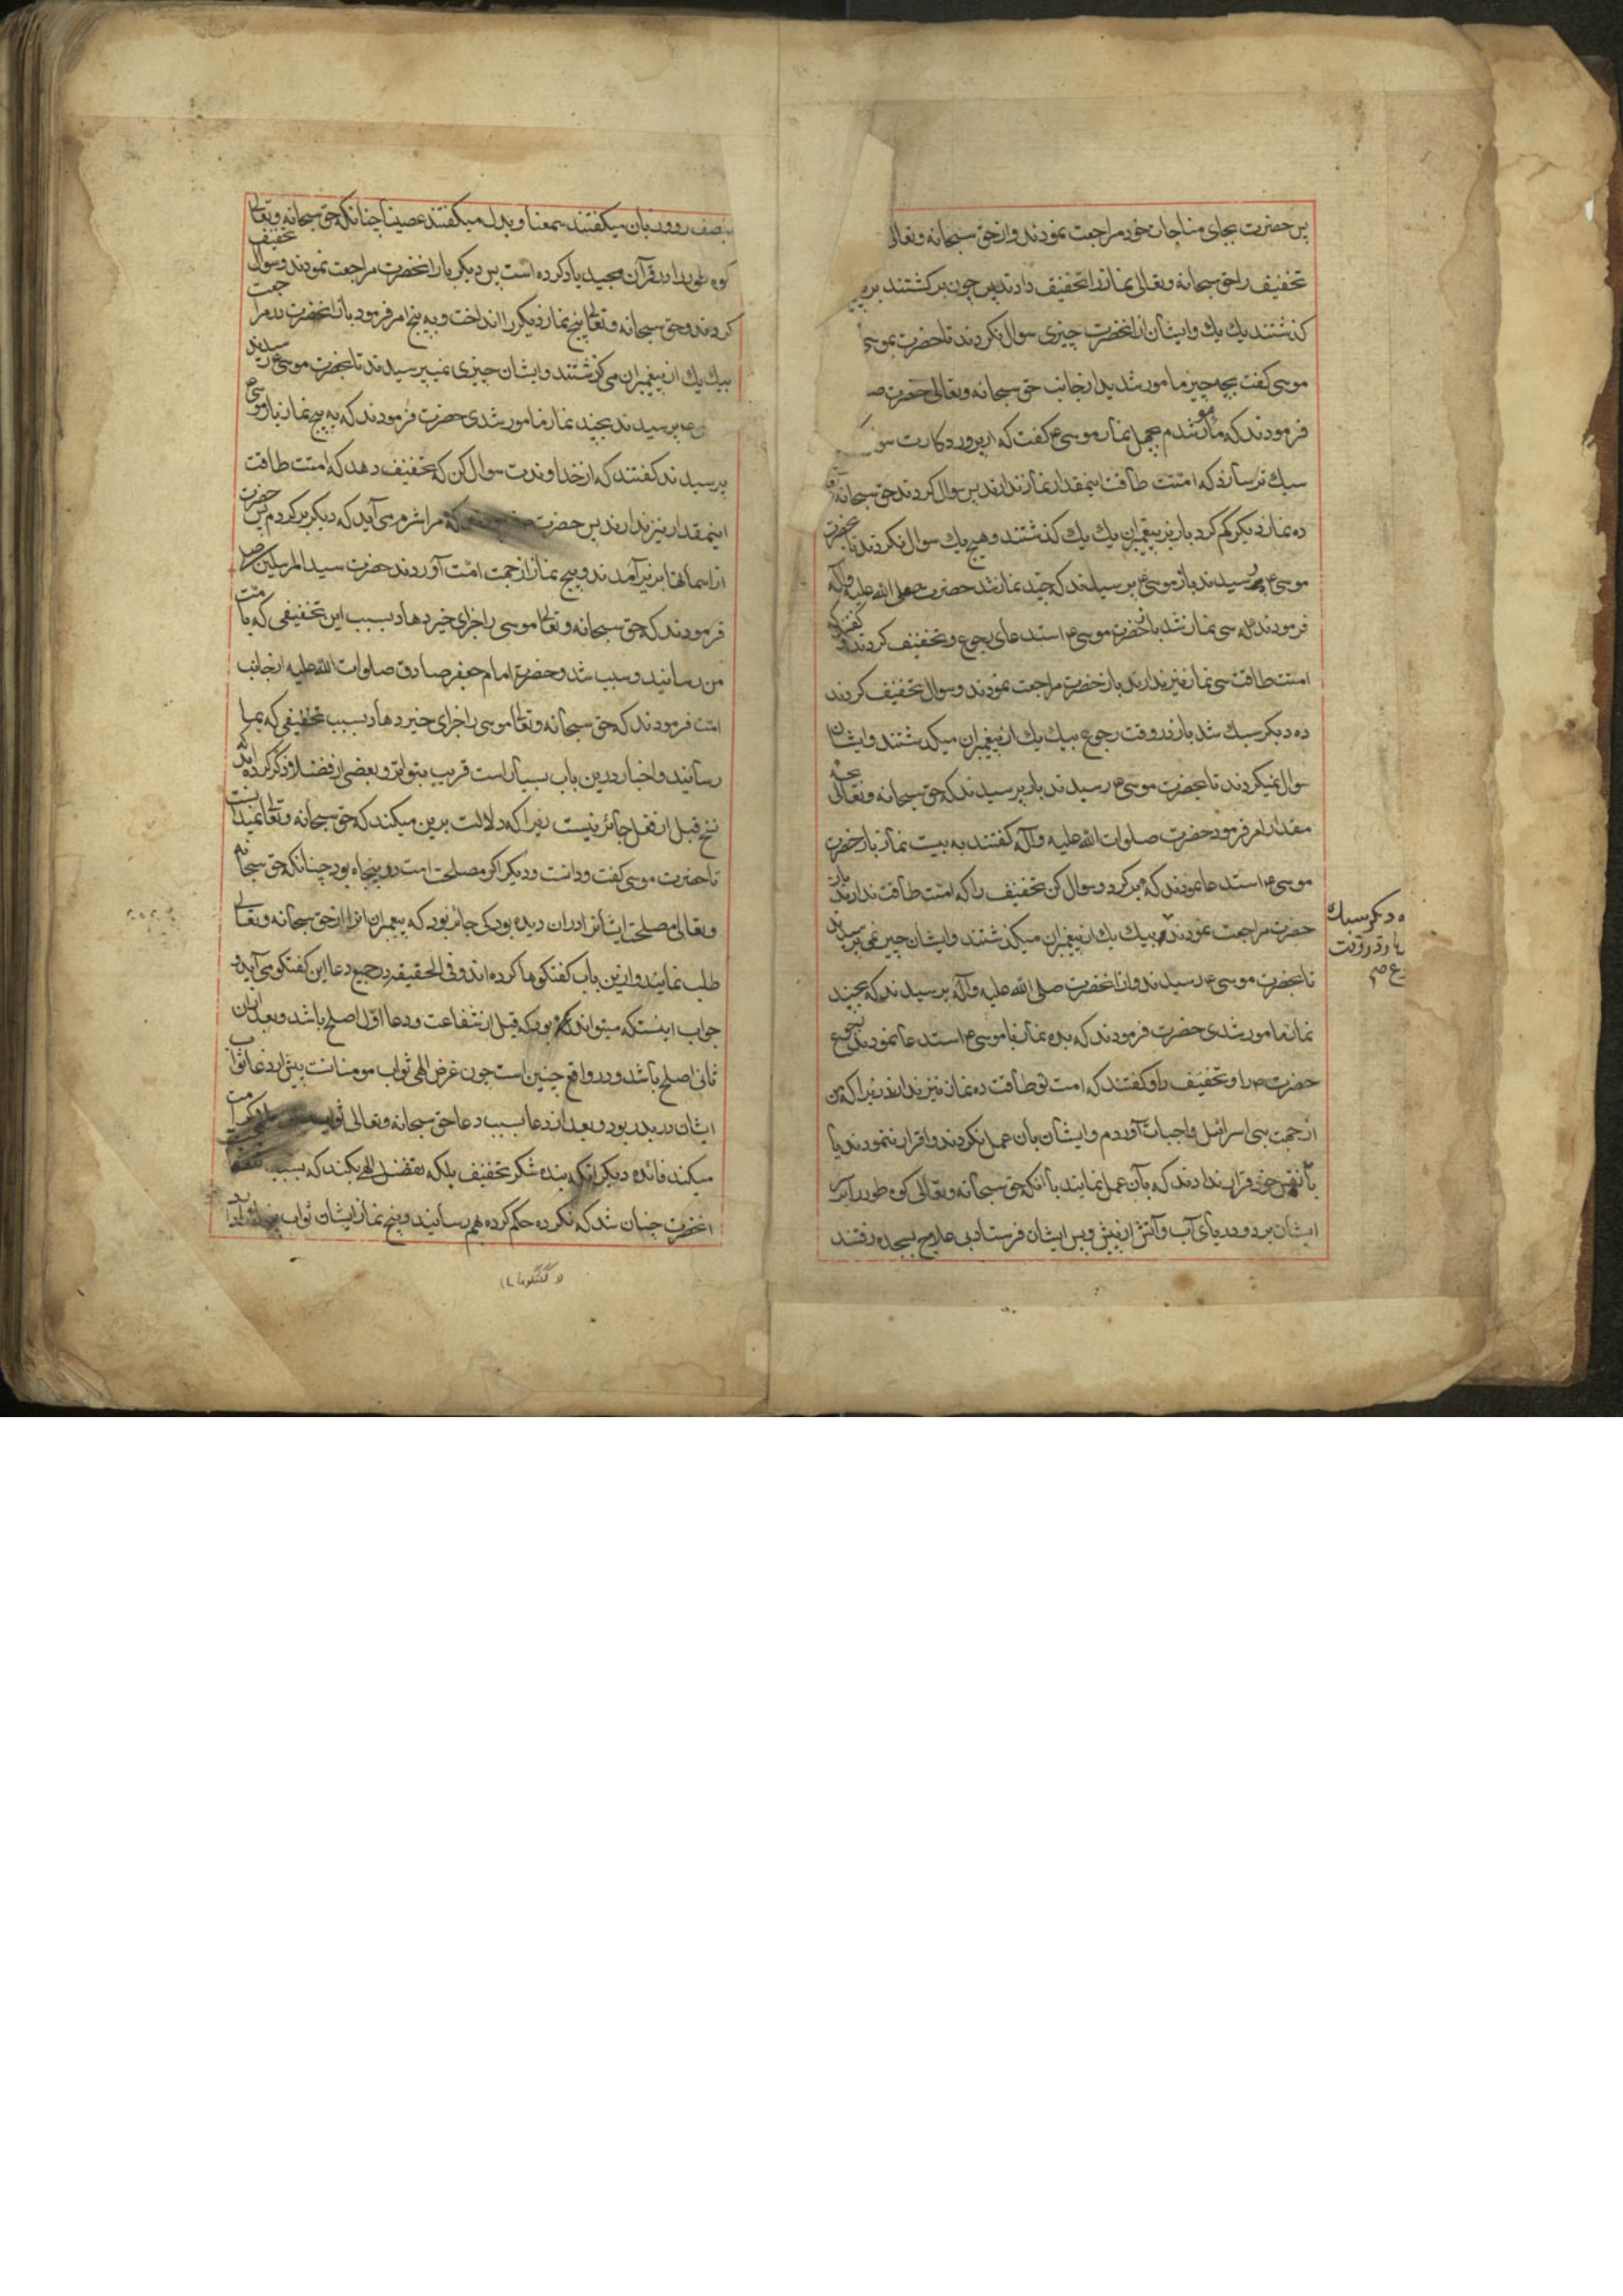 پس حضرت بجای مناجات خود مراجعت نمودند و از حق سبحانه و تعالی
تخفیف را حق سبحانه و تعالی نماز را تخفیف دادند پس چون برگشتند بر
گذشتند یك یك و ایشان از آنحضرت چیزی سوال نکردند تا حضرت موسی
موسی گفت بچه چیز مامور شدید از جانب حق سبحانه و تعالی حضرت ص
فرمودند که مامور شدم بچهل نماز موسی ع گفت که از پروردکارت سو
سبك تر سازد که امتت طاقت اینمقدار نماز ندارند پس سوال کردند حق سبحانه
ده نماز دیکر کم کرد باز بر پیغمبران یك یك گذشتند و هیچ یك سوال نکردند تا بحضرت
موسی ع رسیدند باز موسی ع پرسیدند که چند نماز شد حضرت صلی الله علیه و آله
فرمودند که سی نماز شد باز حضرت موسی ع استدعای رجوع و تخفیف کردند و گفتند که
امتت طاقت سی نماز نیز ندارند باز حضرت مراجعت نمودند و سوال تخفیف کردند
ده دیکر سبك شد باز در وقت رجوع بیك یك از پیغمبران میگذشتند و ایشان
سوال نمیکردند تا بحضرت موسی ع رسیدند باز پرسیدند که حق سبحانه و تعالی بچه
مقدار امر فرمود حضرت صلوات الله علیه و آله گفتند به بیست نماز باز حضرت
موسی ع استدعا نمودند که برگرد و سوال کن تخفیف را که امتت طاقت ندارند باز
حضرت مراجعت نمودند بیك یك از پیغمبران میکذشتند و ایشان چیز نمی پرسیدند
ه دیکر سبك
تا بحضرت موسی ع رسیدند و از آنحضرت صلی الله علیه و آله پرسیدند که بچند
نماز مامور شدی حضرت فرمودند که بده نماز باز موسی ع استدعا نمودند رجوع
حضرت ص را و تخفیف را و کفتند که امت تو طاقت ده نماز نیز ندارند زیرا که من
از جهت بنی اسرائیل واجبات آوردم و ایشان بآن عمل نکردند و اقرار ننمودند یا
با نفس خود قرار ندادند که بآن عمل نمایند با آنکه حق سبحانه و تعالی کوه طور را بر سر
ایشان برد و دریای آب و آتش از پیش و پس ایشان فرستاد بی علاج بسجده رفتند
بنصف رو و بزبان میکفتند سمعنا و بدل میکفتند عصینا چنانکه حق سبحانه و تعالی
کوه طور را در قرآن مجید یاد کرده است پس دیکر بار آنحضرت مراجعت نمودند و سوال تخفیف
کردند و حق سبحانه و تعالی پنج نماز دیکر را انداخت و به پنج امر فرمود باز آنحضرت در مراجعت
بیك یك از پیغمبران می گذشتند و ایشان چیزی نمیپرسیدند تا بحضرت موسی ع رسیدند
پرسیدند بچند نماز مامور شدی حضرت فرمودند که به پنج نماز باز موسی ع
پرسیدند کفتند که از خداوندت سوال کن که تخفیف دهد که امتت طاقت
اینمقدار نیز ندارند پس حضرت که مرا شرم می آید که دیکر برکردم پس حضرت
از آسمانها بزیر آمدند و پنج نماز از جهت امت آوردند حضرت سید المرسلین ص
فرمودند که حق سبحانه و تعالی موسی را جزای خیر دهاد بسبب این تخفیفی که بامت
من رسانید و سبب شد و حضرت امام جعفر صادق صلوات الله علیه از جانب
امت فرمودند که حق سبحانه و تعالی موسی را جزای خیر دهاد بسبب تخفیفی که بما
رسانید و اخبار درین باب بسیار است قریب بتواتر و بعضی از فضلا ذکر کرده اند که
نسخ قبل از فعل جائز نیست زیرا که دلالت برین میکند که حق سبحانه و تعالی نمیدانست
تا حضرت موسی کفت و دانست و دیکر اکر مصلحت امت در پنجاه بود چنانکه حق سبحانه
و تعالی مصلحت ایشانرا در آن دیده بود کی جائز بود که پیغمبران آنرا از حق سبحانه و تعالی
طلب نمایند و ازین باب کفتکوها کرده اند و فی الحقیقه در جمیع دعا این کفتکو می آید و
جواب اینستکه میتواند بود که قبل از شفاعت و دعا اول اصلح باشد و بعد از آن
ثانی اصلح باشد و در واقع چنین است چون غرض الهی ثواب مومنانست پیش از دعا ثواب
ایشان در بدر بود و بعد از دعا بسبب دعا حق سبحانه و تعالی ثواب
میکند فائده دیکر آنکه بنده شکر تخفیف بلکه تفضل الهی بکند که بسبب
آنحضرت چنان شد که نکرده حکم کرده بهم رسانید و پنج نماز ایشان ثواب
(و گفتگوها)